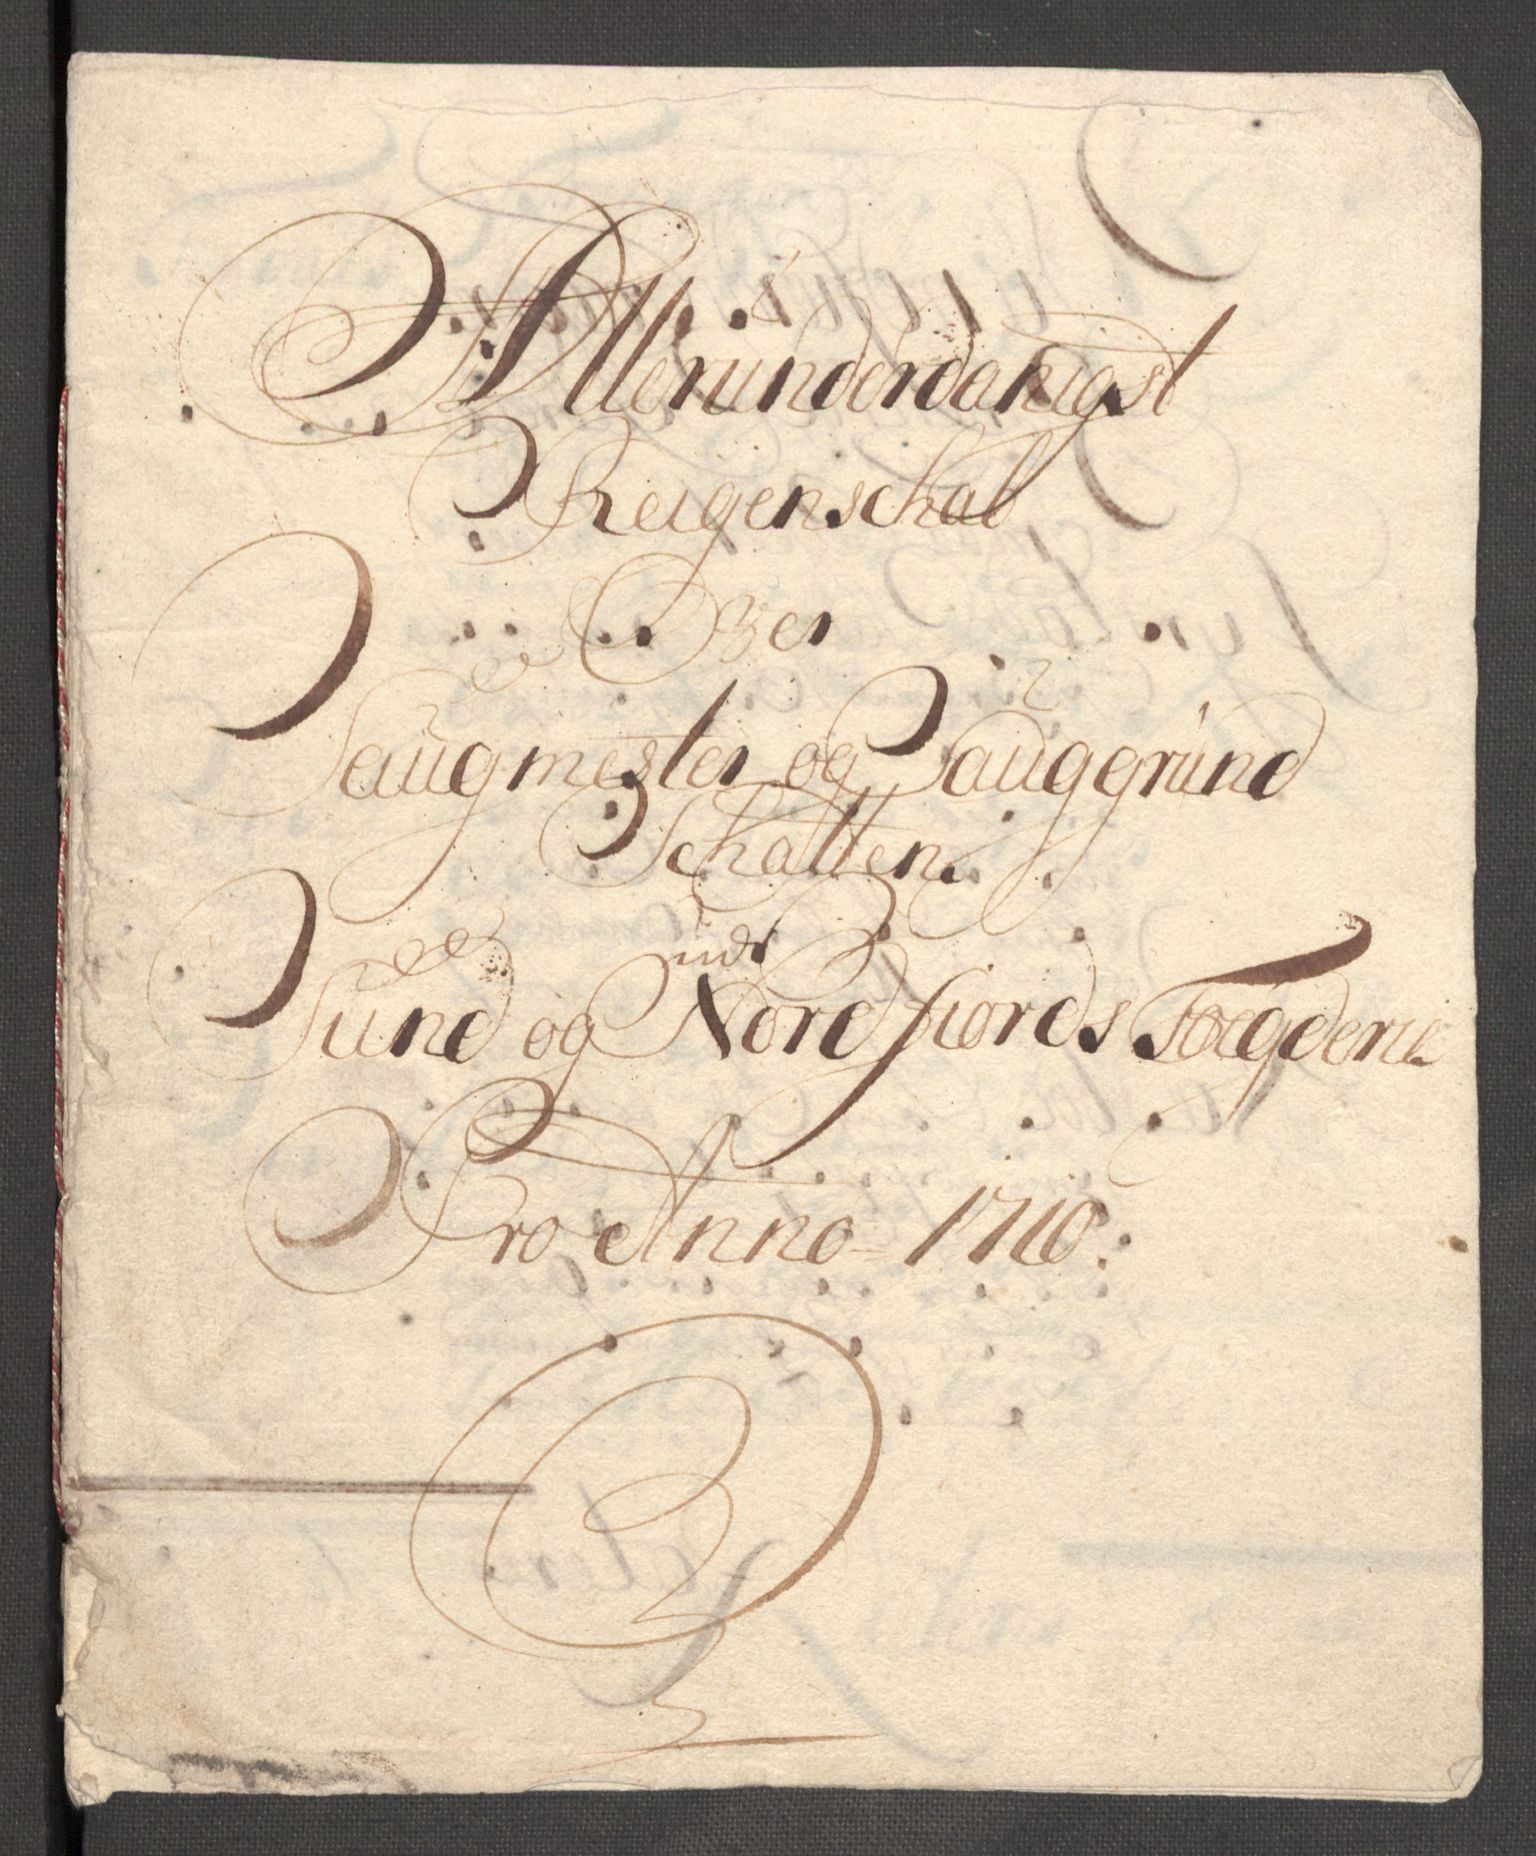 Allerunderdanigst
Reigenschab
Over
Saugmester og Sauggrund
Schatten
udj
Sund og Nordfiords Fogderie
Pro Anno 1710.